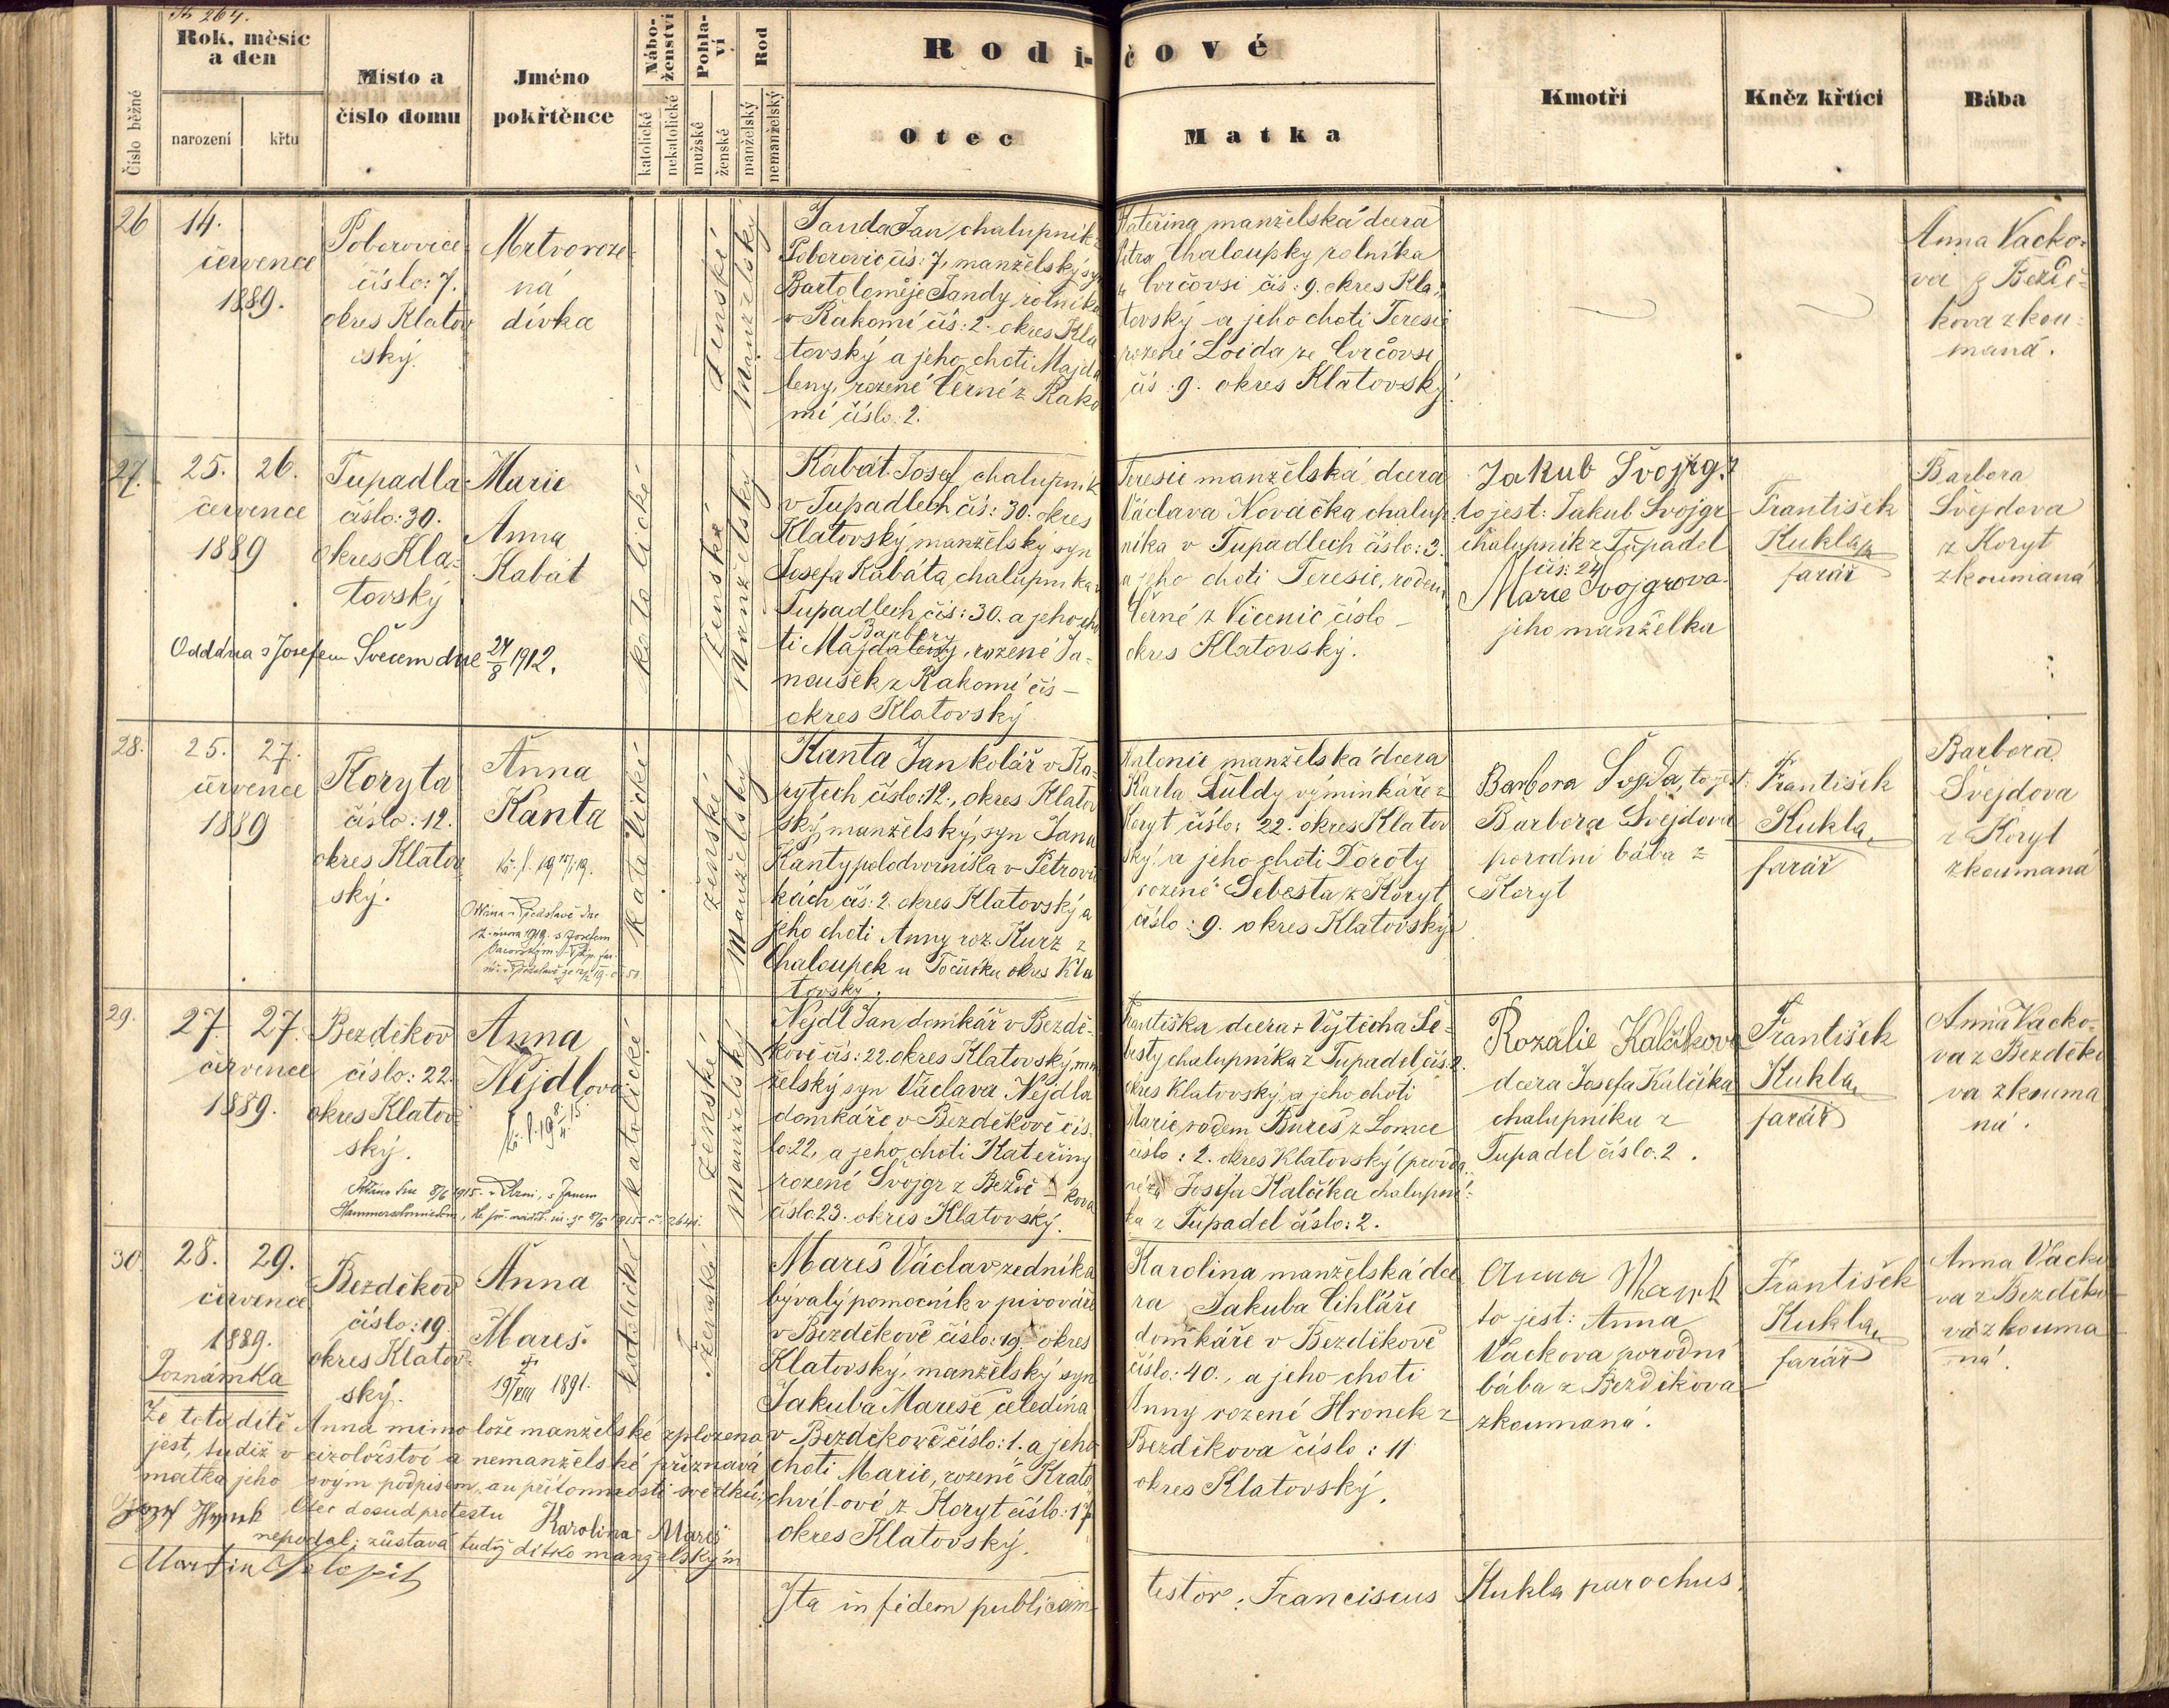 Rok, měsíc
a den
narození
křtu
Číslo běžné
Místo a
číslo domu
Jméno
pokřtěnce
Nábo-
ženství
katolické
nekatolické
Pohla-
ví
mužské
ženské
Rod
manželský
nemanželský
Rodi-čové
Otec
Matka
Kmotři
Kněz křtící
Bába
26
14.
července
1889.
Poborovice
číslo: 7.
okres Klatov
ský.
Mrtvoroze-
ná
dívka
ženské
manželský
Janda Jan chalupník z
Poborovic čís: 7, manželský syn
Bartoloměje Jandy, rolníka
v Rakomi čís: 2. okres Kla
tovský a jeho choti Majda
leny, rozené Černé z Rako
mi číslo: 2.
Kateřina manželská dcera
Petra Chaloupky rolníka
Cvrčovsi čís: 9. okres Kla-
tovský a jeho choti Teresie
rozené Loida ze Cvrčovsi
čís. 9. okres Klatovský.
Anna Vacko-
va z Bezdě-
kova zkou-
maná.
27.
25. 26.
července
1889
Tupadla
číslo: 30.
okres Kla-
tovský
Marie
Anna
Kabát
Oddána s Josefem Švecem dne 24/8 1912.
katolické
ženské
manželský
Kabát Josef, chalupník
v Tupadlech čís: 30. okres
Klatovský, manželský syn
Josefa Kabáta, chalupníka v
Tupadlech čís: 30. a jeho cho
Barbory
ti Majdaleny, rozené Ja-
noušek z Rakomi čís –
okres Klatovský
Teresie manželská dcera
Václava Nováčka chalup-
níka v Tupadlech číslo: 3.
a jeho choti Teresie, rodem
Černé z Vicenic číslo –
okres Klatovský.
Jakub Švojgr
to jest: Jakub Švojgr
chalupník z Tupadel
čís: 24
Marie Švojgrova
jeho manželka
František
Kukla
farář
Barbora
Švejdova
z Koryt
zkoumaná
28.
25. 27.
července
1889
Koryta
číslo: 12.
okres Klatov
ský.
Anna
Kanta
katolické
ženské
manželský
Kanta Jan kolář v Ko-
rytech číslo: 12., okres Klatov
ský, manželský syn Jana
Kanty polodvorníka v Petrovič
kách čís: 2. okres Klatovský a
jeho choti Anny roz. Kurz z
Chaloupek u Točníku okres Kla
tovský.
Antonie manželská dcera
Karla Šuldy výminkáře z
Koryt číslo: 22. okres Klatov
ský a jeho choti Doroty
rozené Šebesta z Koryt
číslo: 9. okres Klatovský
Barbora Švejda, to jest:
Barbora Švejdova
porodní bába z
Koryt
František
Kukla,
farář
Barbora
Švejdova
z Koryt
zkoumaná
29.
27. 27.
července
1889.
Bezděkov
číslo: 22.
okres Klatov
ský.
Anna
Nejdlova
katolické
ženské
manželský
Nejdl Jan domkář v Bezdě-
kově čís: 22. okres Klatovský, man
želský syn Václava Nejdla
domkáře v Bezděkově čís-
lo: 22, a jeho choti Kateřiny
rozené Švojgr z Bezdě – kova
číslo: 23. okres Klatovský.
Františka dcera + Vojtěcha Še-
besty chalupníka z Tupadel čís: 2.
okres Klatovský a jeho choti
Marie rodem Bureš z Lomce
číslo: 2. okres Klatovský (provda
né za Josefa Kalčíka chalupní-
ka z Tupadel číslo: 2.
Rozálie Kalčíkova
dcera Josefa Kalčíka
chalupníka z
Tupadel číslo. 2.
František
Kukla,
farář
Anna Vacko-
va z Bezděko
va zkouma
ná.
30.
28. 29.
července
1889.
Bezděkov
číslo: 19.
okres Klatov-
ský.
Anna
Mareš.
+
19/VIII 1891.
katolické
ženské
Mareš Václav zedníka
bývalý pomocník v pivováře
v Bezděkově číslo: 19. okres
Klatovský, manželský syn
Jakuba Mareše čeledína
v Bezděkově číslo: 1. a jeho
choti Marie, rozené Krato
chvíl-ové z Koryt číslo: 17
okres Klatovský.
Karolina manželská dce
ra Jakuba Cihláře
domkáře v Bezděkově
číslo: 40., a jeho choti
Anny rozené Hronek z
Bezděkova číslo: 11
okres Klatovský.
Anna
to jest: Anna
Vackova porodní
bába z Bezděkova
zkoumaná.
František
Kukla,
farář
Anna Vacko
va z Bezděko
va zkouma
ná.
Poznámka
Že toto dítě Anna mimo lože manželské zplozena
jest, tudíž v cizoložství a nemanželské přiznává
matka jeho svým podpisem, au přítomnosti svědků;
Otec dosud protestu Karolina Mareš
nepodal; zůstává tudíž dítko manželským
Martin
Ita in fidem publicam testor: Franciscus Kukla parochus.